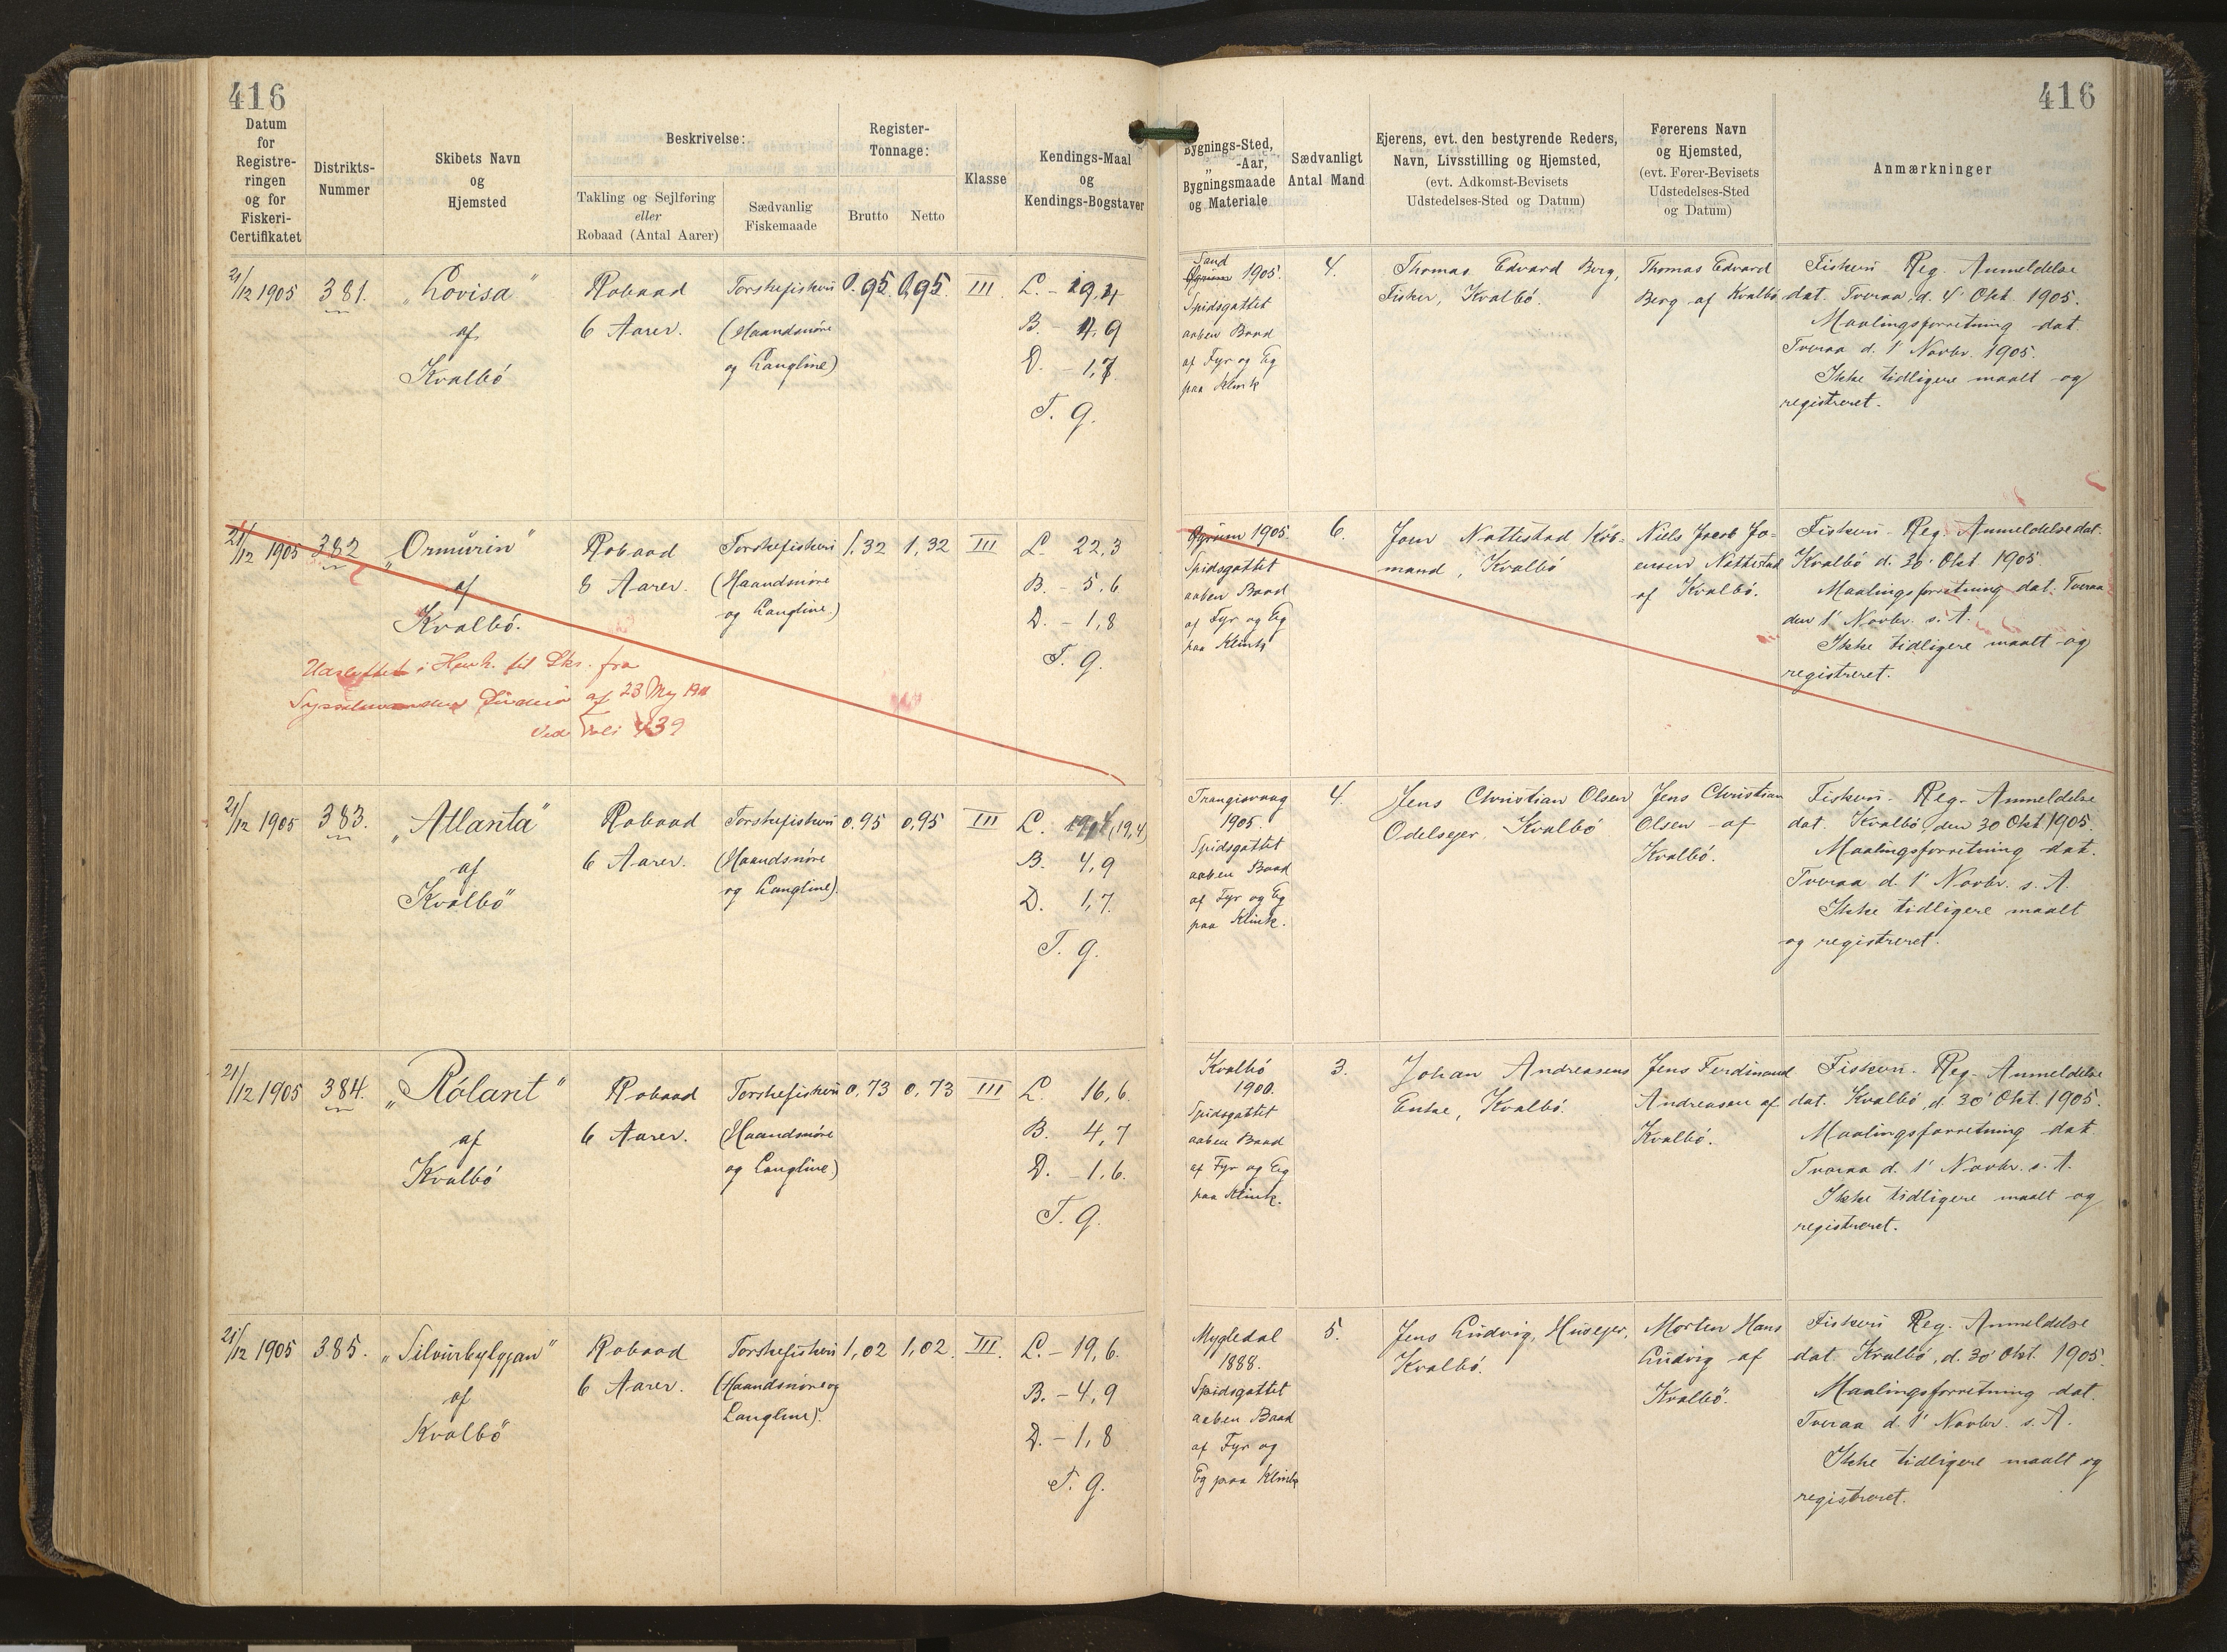 416
416
Datum
for
Registre-
ringen
og for
Fiskeri-
Certifikatet
Distrikts-
Nummer
Skibets Navn
og
Hjemsted
Beskrivelse:
Takling og Sejlføring
eller
Robaad (Antal Aarer)
Sædvanlig
Fiskemaade
Register-
Tonnage:
Brutto
Netto
Klasse
Kendings-Maal
og
Kendings-Bogstaver
Bygnings-Sted,
„ -Aar,
Bygningsmaade
og Materiale
Sædvanligt
Antal Mand
Ejerens, evt. den bestyrende Reders,
Navn, Livsstilling og Hjemsted,
(evt. Adkomst-Bevisets
Udstedelses-Sted og Datum)
Førerens Navn
og Hjemsted,
(evt. Fører-Bevisets
Udstedelses-Sted
og Datum)
Anmærkninger
21/12 1905
381.
„Lovisa"
af
Kvalbö
Robaad
6 Aarer.
Torskefiskeri
(Haandsnöre
og Langline)
0.95
0,95
III
L. - 19,4
B. - 4,9
D. - 1,7.
T. g.
Sand
1905.
Spidsgattet
aaben Baad
af Fyr og Eg
paa Klink
4.
Thomas Edvard Berg,
Fisker, Kvalbö.
Thomas Edvard
Berg af Kvalbö
Fiskeri Reg. Anmeldelse
dat. Tveraa, d. 4' Okt. 1905.
Maalingsforretning dat.
Tveraa d. 1' Novbr. 1905.
Ikke tidligere maalt og
registreret.
21/12 1905
382
„Ormúrin"
af
Kvalbö.
Robaad
8 Aarer.
Torskefiskeri
(Haandsnöre
og Langline.)
1,32
1,32
III
L. 22,3
B. - 5,6
D. - 1,8
T. g.
Udslettet i Henh. til Skr. fra
Sysselmanden Suderö af 23 Maj 1911
ved Foli 439
1905
Spidsgattet
aaben Baad
af Fyr og Eg
paa Klink
6.
Joen Nattestad Köb-
mand, Kvalbö
Niels Jacob Jo-
ensen Nattestad
af Kvalbö.
Fiskeri - Reg. Anmeldelse dat.
Kvalbö d. 30' Okt 1905.
Maalingsforretning dat. Tveraa
den 1' Novbr. s. A.
Ikke tidligere maalt og
registreret.
21/12 1905
383.
„Atlanta"
af
Kvalbö"
Robaad
6 Aarer.
Torskefiskeri
(Haandsnöre
og Langline).
0.95
0,95
III
L. 19,4 (19,4)
B. 4,9
D. 1,7.
T. g.
Trangisvaag
1905.
Spidsgattet
aaben Baad
af Fyr og Eg
paa Klink.
4.
Jens Christian Olsen
Odelsejer, Kvalbö
Jens Christian
Olsen af
Kvalbö.
Fiskeri- Reg- Anmeldelse
dat. Kvalbö, den 30 Okt 1905.
Maalingsforretning dat.
Tveraa d. 1' Novbr. s. A.
Ikke tidligere maalt
og registreret.
21/12 1905
384.
„Rólant"
af
Kvalbö
Robaad
6 Aarer.
Torskefiskeri
(Haandsnöre
og Langline)
0,73
0,73
III
L. 16,6.
B. 4,7
D. - 1,6.
T. g.
Kvalbö
1900.
Spidsgattet
aaben Baad
af Fyr og Eg
paa Klink.
3.
Johan Andreasens
Enke, Kvalbö.
Jens Ferdinand
Andreasen af
Kvalbö.
Fiskeri- Reg- Anmeldelse
dat. Kvalbö, d. 30' Okt. 1905.
Maalingsforretning dat.
Tveraa d. 1' Novbr. s. A.
Ikke tidligere maalt og
registreret.
21/12 1905
385.
„Silvurbylgjan"
af
Kvalbö
Robaad
6 Aarer.
Torskefiskeri
(Haandsnöre og
Langline).
1,02
1,02.
III.
L. - 19,6.
B. - 4,9
D. - 1,8
T. g.
Mygledal
1888.
Spidsgattet
aaben Baad
af Fyr og
Eg paa Klink
5.
Jens Ludvig, Husejer,
Kvalbö.
Morten Hans
Ludvig af
Kvalbö.
Fiskeri Reg. Anmeldelse
dat. Kvalbö, d. 30' Okt. 1905.
Maalingsforretning dat.
Tveraa d. 1' Novbr. s. A.
Ikke tidligere maalt og
registreret.